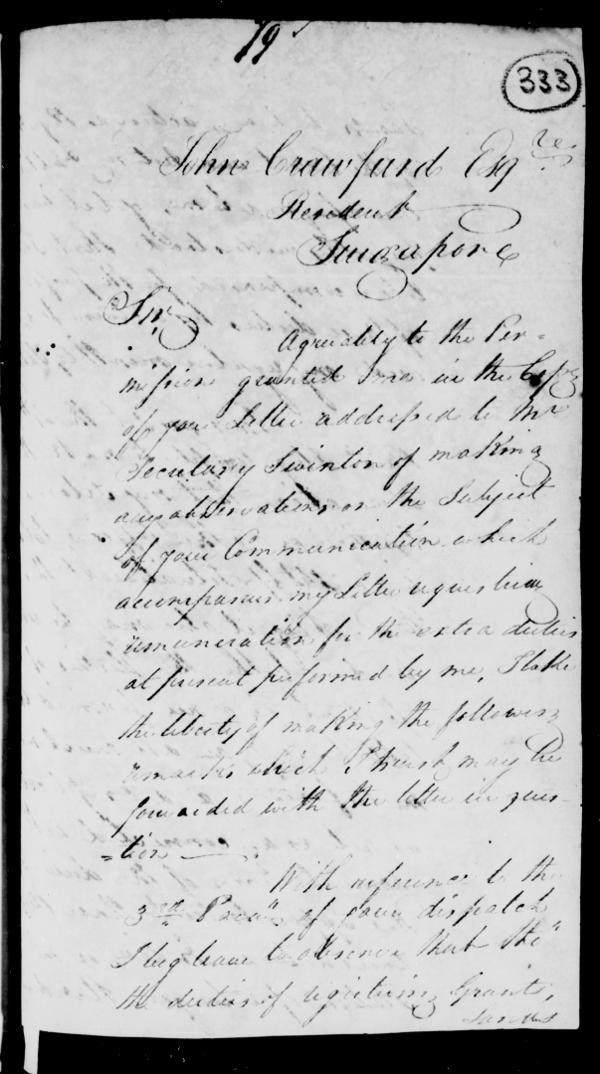 19
333
John Crawfurd Esqre
Resident
Singapore
Sir,
Agreeably to the Per-
mission granted me in the Copy
of your Letter addressed to Mr
Secretary Swinton of making
any observations on the Subject
of your Communication which
accompanies my Letter requesting
remuneration for the extra duties
at present performed by me, I take
the liberty of making the following
remarks which I trust may be
forwarded with the letter in ques-
=tion
With reference to the
3rd Para of your dispatch
I beg leave to observe that tho'
the duties of registering Grants,